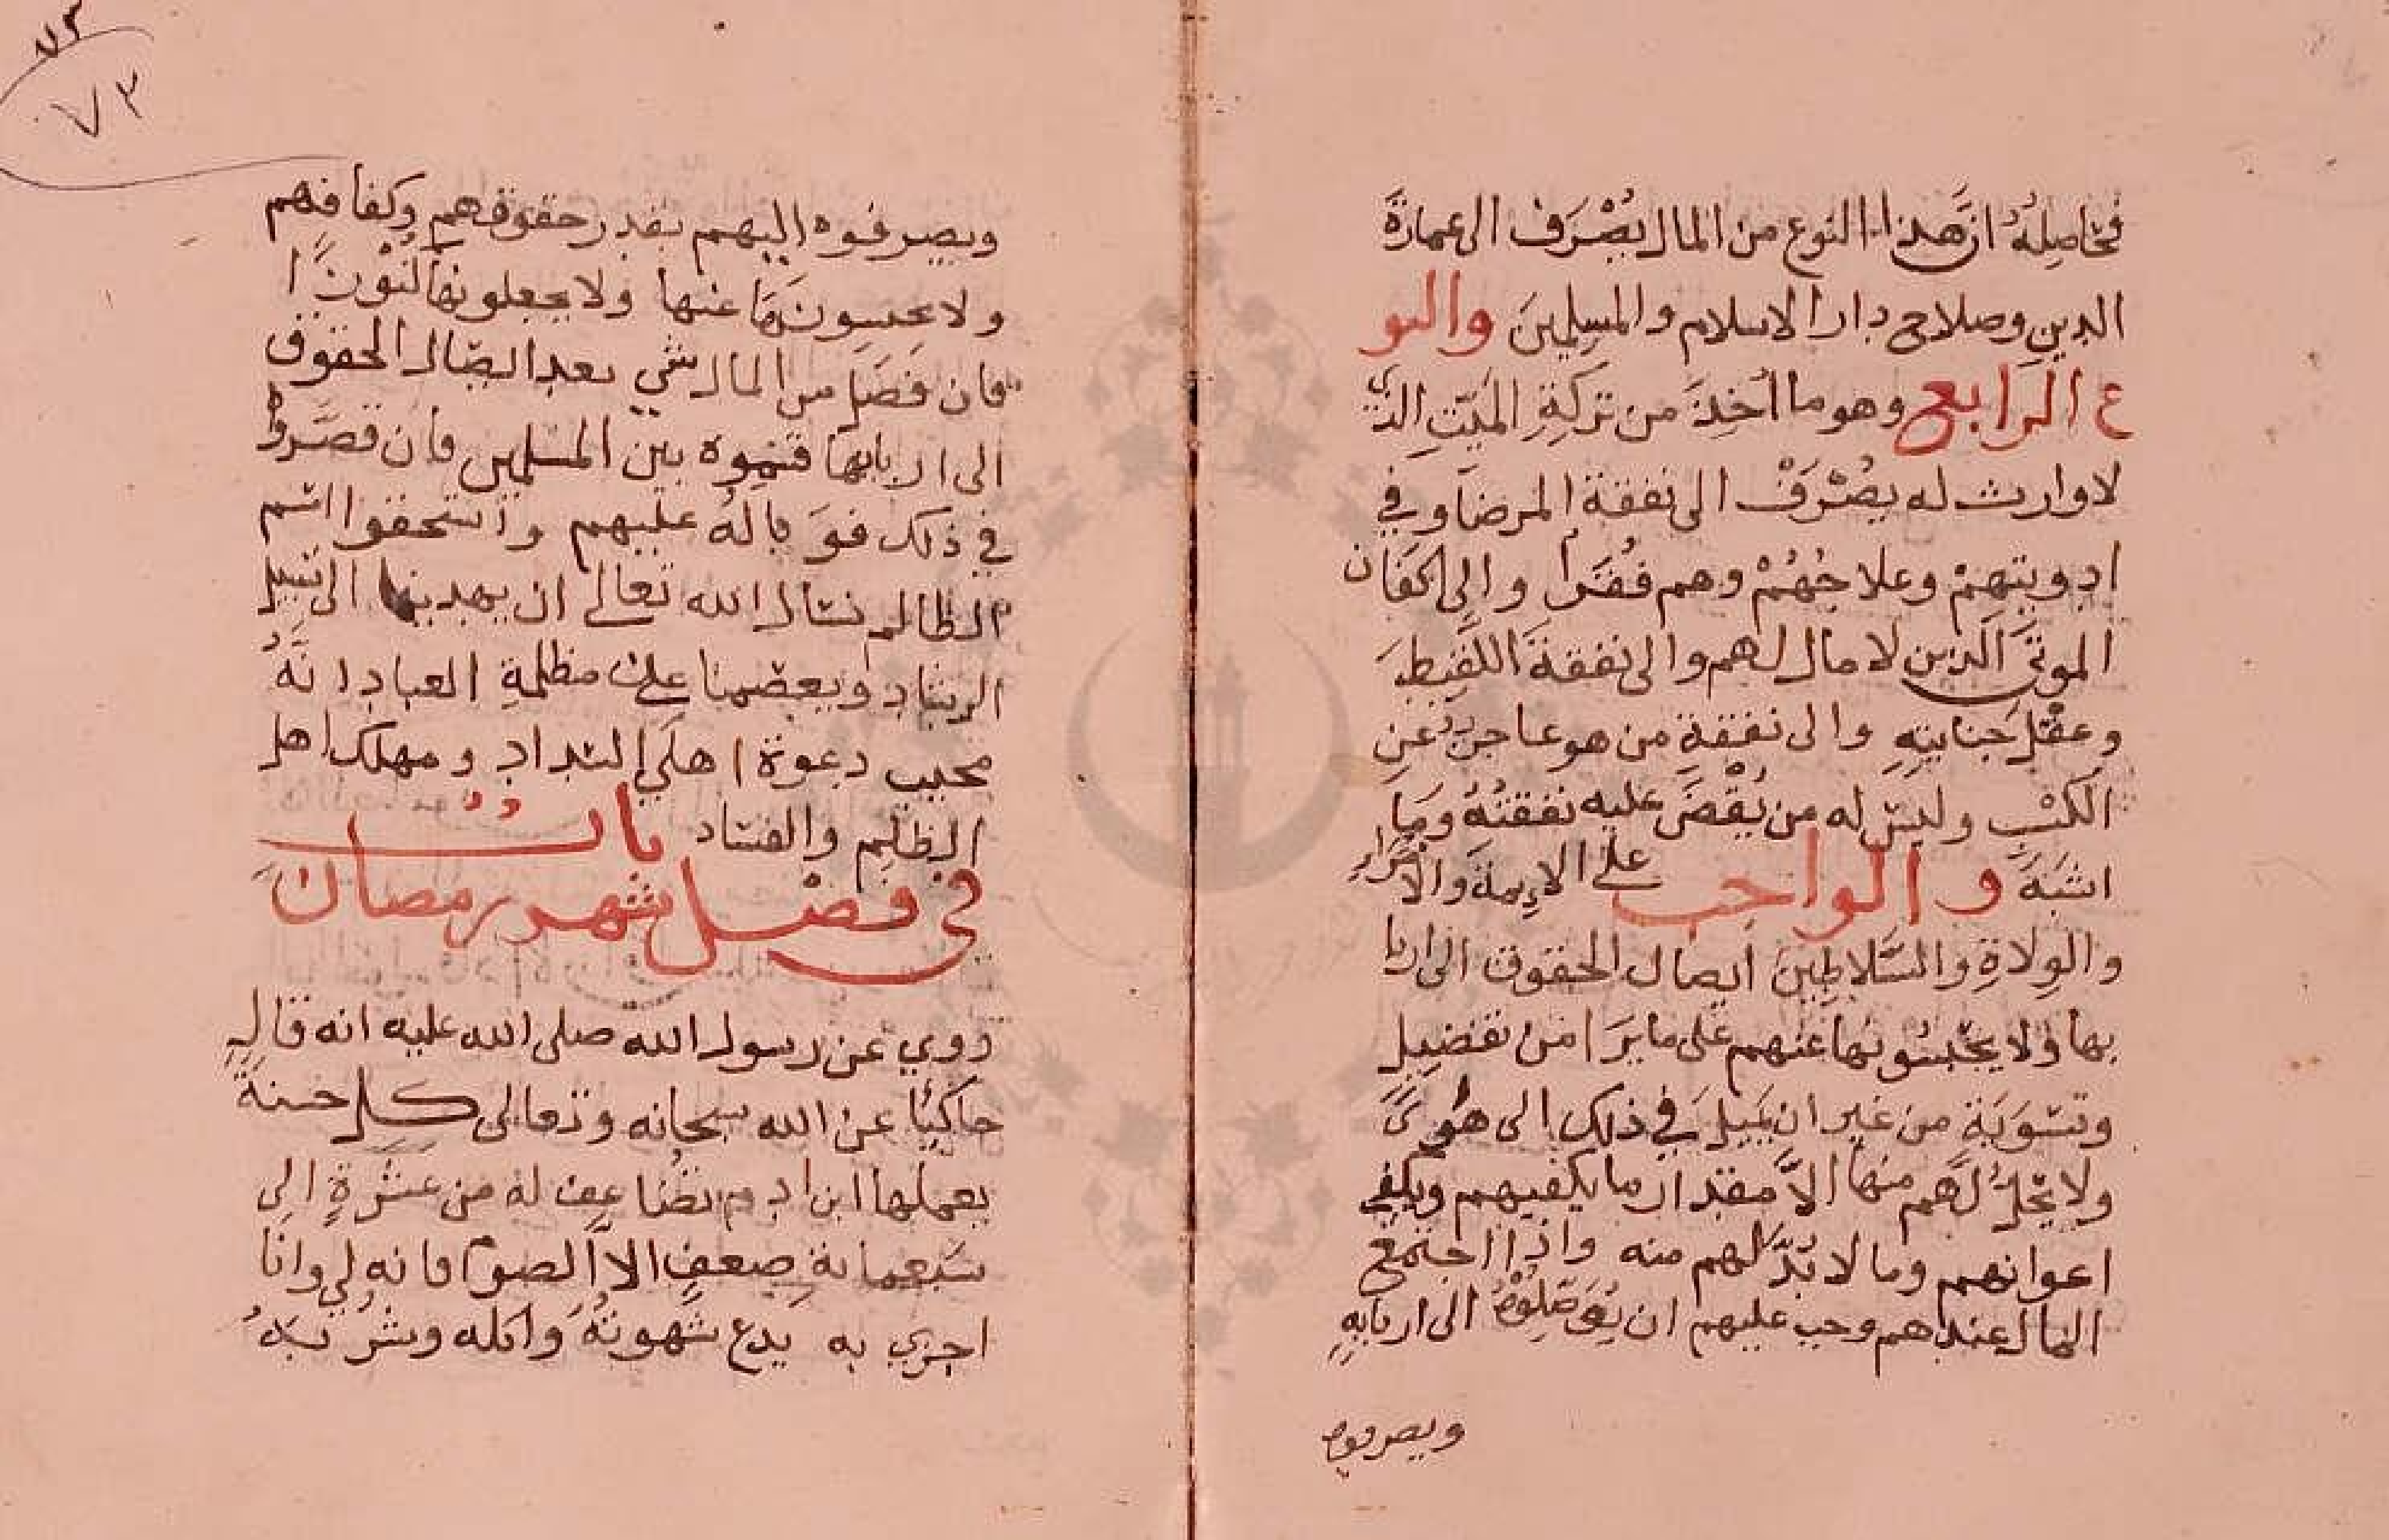 فحاصِلهُ ان هذا النوع من المال يُصْرَف الى عمارة
الدين وصلاح دار الاسلام والمسلمينَ والنو
ع الرابع وهو ما أُخِذَ من تَرِكَةِ الميّتِ الذي
لا وارث له يصْرَفْ الى نفقة المرضا وفي
ادويتِهِمْ وعلاجُهُمْ وهم فُقَرا والى اكفان
الموتى الذين لا مال لهم والى نفقة اللقيط
وعقْل جنايتِهِ والى نفقةِ من هو عاجزٌ عن
الكسْبِ وليس له من يُقْضَى عليه نفقتُهُ وما
اشبَهَ والواجب على الايمة والامراءِ
والوِلاةِ والسَّلاطِين ايصال الحقوق الى اربا
بها ولا يحْبسُونها عنهم على ما يَرَا من تفضيل
وتسْوَيَةٍ من غير ان يميلَ في ذلك الى هُوىً
ولا يحلُّ لهم منها الاَّ مقدار ما يكفيهم ويكفي
اعوانهم وما لا بُدَّ لهم منه واذا اجتمع
المال عندهم وجب عليهم ان يُوَصِّلوْهُ الى اربابِهِ
ويصرفوه
٧٢
٧٣
ويصرفوه اليهم بقدر حقوقهم وكفافهم
ولا يحبسونَها عنها ولا يجعلونها
فان فَضَل من المال شي بعد ايصال الحقوق
الى اربابها قسموه بين المسلمين فان قصَّروا
في ذلك فوَبالهُ عليهم واستحقوا اسم
الظالم نسال الله تعالى ان يهدينا الى سبيل
الرشاد ويعصمنا عن مظلمةِ العباد انَّهُ
مجيب دعوة اهل السداد ومهلك اهل
الظلم والفساد بابٌ
في فضل شهر رمضان
رُوي عن رسول الله صلى الله عليه انه قال
حاكيًا عن الله سبحانه وتعالى كل حسنة
يعملها ابن ادم تضُاعف له من عشْرةٍ الى
سَبعماية ضعفٍ الاَّ الصوم فانه لي وانا
اجزي به يدع شهوتُهُ واكله وشُربَهُ